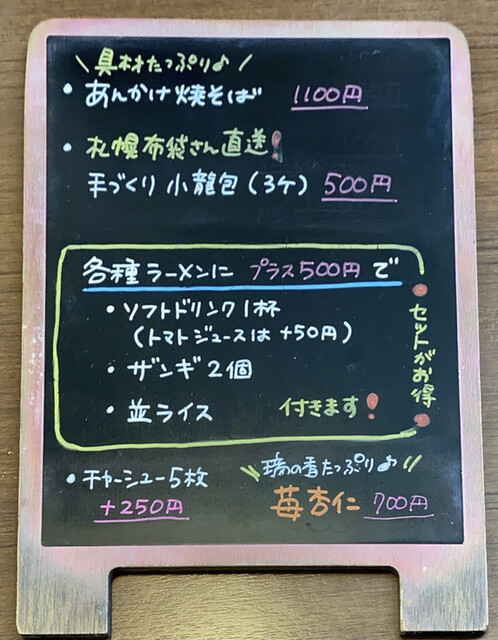 \ 具材たっぷり♪ /
・あんかけ焼そば 1100円
・札幌布袋さん直送!
手づくり 小龍包 (3ケ) 500円
各種ラーメンに プラス500円で
・ソフトドリンク1杯
(トマトジュースは +50円)
・ザンギ 2個
・並ライス 付きます!
セットがお得
・チャーシュー5枚
+250円
\\ 苺の香たっぷり♪ //
苺杏仁 700円